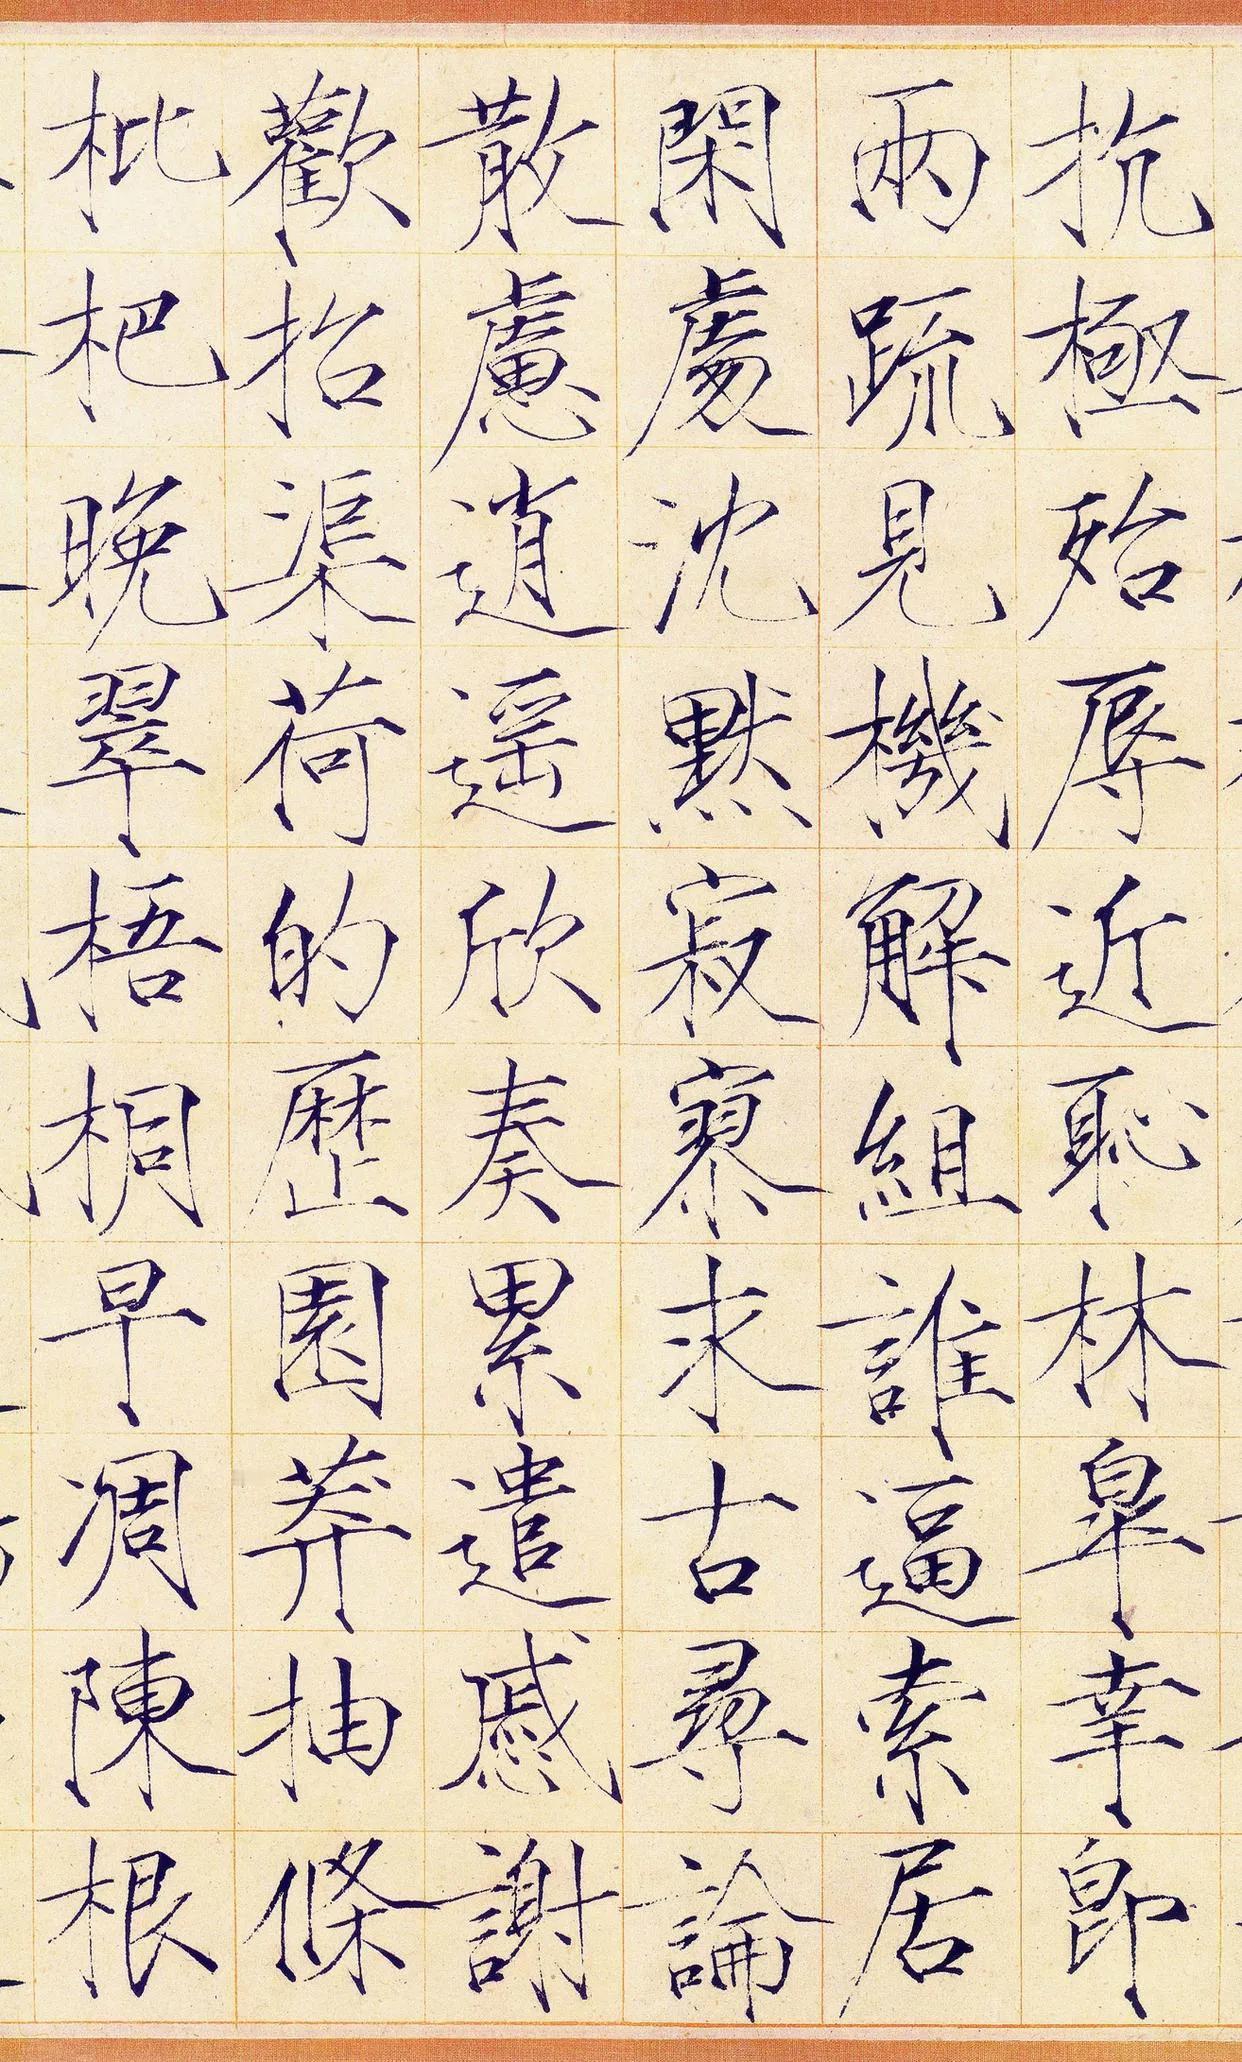 抗極殆辱近恥林皐幸即
兩疏見機解組誰逼索居
閑處沈默寂寥求古尋論
散慮逍遥欣奏累遣慼謝
歡招渠荷的歷園莽抽條
枇杷晚翠梧桐早凋陳根